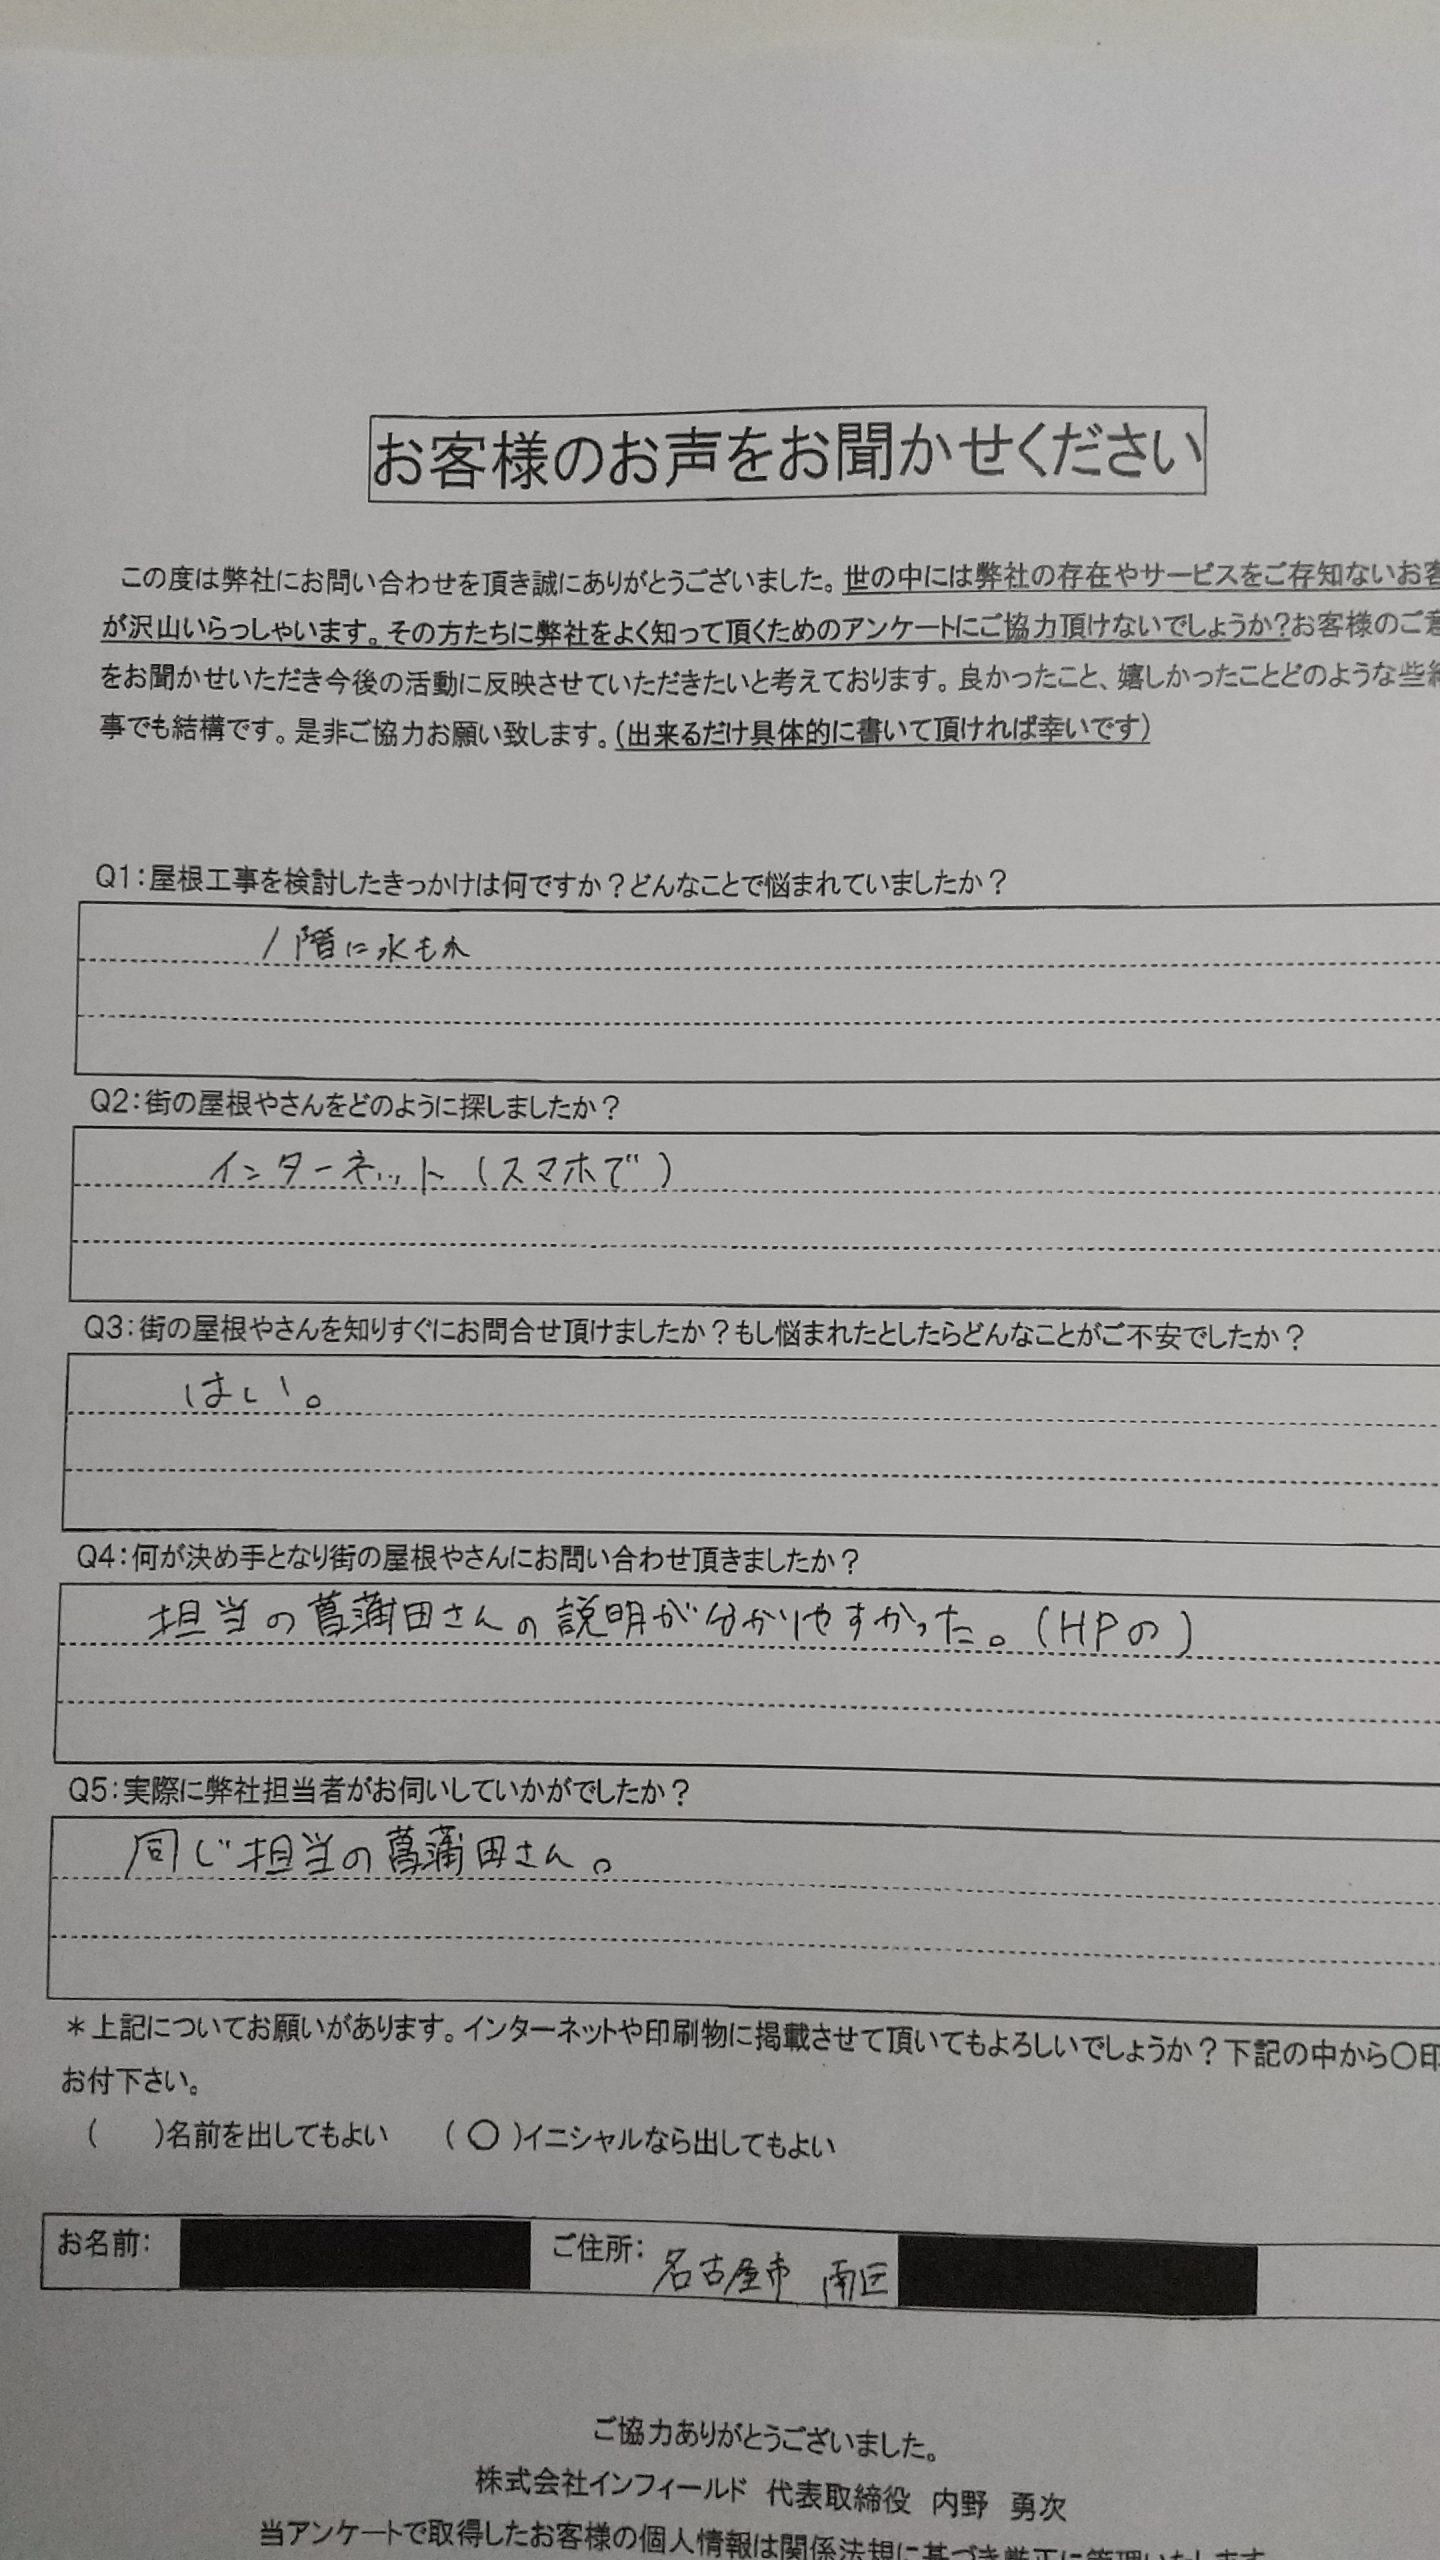 お客様のお声をお聞かせください
この度は弊社にお問い合わせを頂き誠にありがとうございました。世の中には弊社の存在やサービスをご存知ないお客
が沢山いらっしゃいます。その方たちに弊社をよく知って頂くためのアンケートにご協力頂けないでしょうか?お客様のご意
をお聞かせいただき今後の活動に反映させていただきたいと考えております。良かったこと、嬉しかったことどのような些細
事でも結構です。是非ご協力お願い致します。(出来るだけ具体的に書いて頂ければ幸いです)
Q1:屋根工事を検討したきっかけは何ですか?どんなことで悩まれていましたか?
1階に水もれ
Q2:街の屋根やさんをどのように探しましたか?
インターネット(スマホで)
Q3:街の屋根やさんを知りすぐにお問合せ頂けましたか?もし悩まれたとしたらどんなことがご不安でしたか?
はい。
Q4:何が決め手となり街の屋根やさんにお問い合わせ頂きましたか?
担当の菖蒲田さんの説明が分かりやすかった。(HPの)
Q5:実際に弊社担当者がお伺いしていかがでしたか?
同じ担当の菖蒲田さん。
*上記についてお願いがあります。インターネットや印刷物に掲載させて頂いてもよろしいでしょうか?下記の中から〇印
お付下さい。
( )名前を出してもよい (〇)イニシャルなら出してもよい
お名前: ご住所: 名古屋市 南区
ご協力ありがとうございました。
株式会社インフィールド 代表取締役 内野 勇次
当アンケートで取得したお客様の個人情報は関係法規に基づき厳正に管理いたします